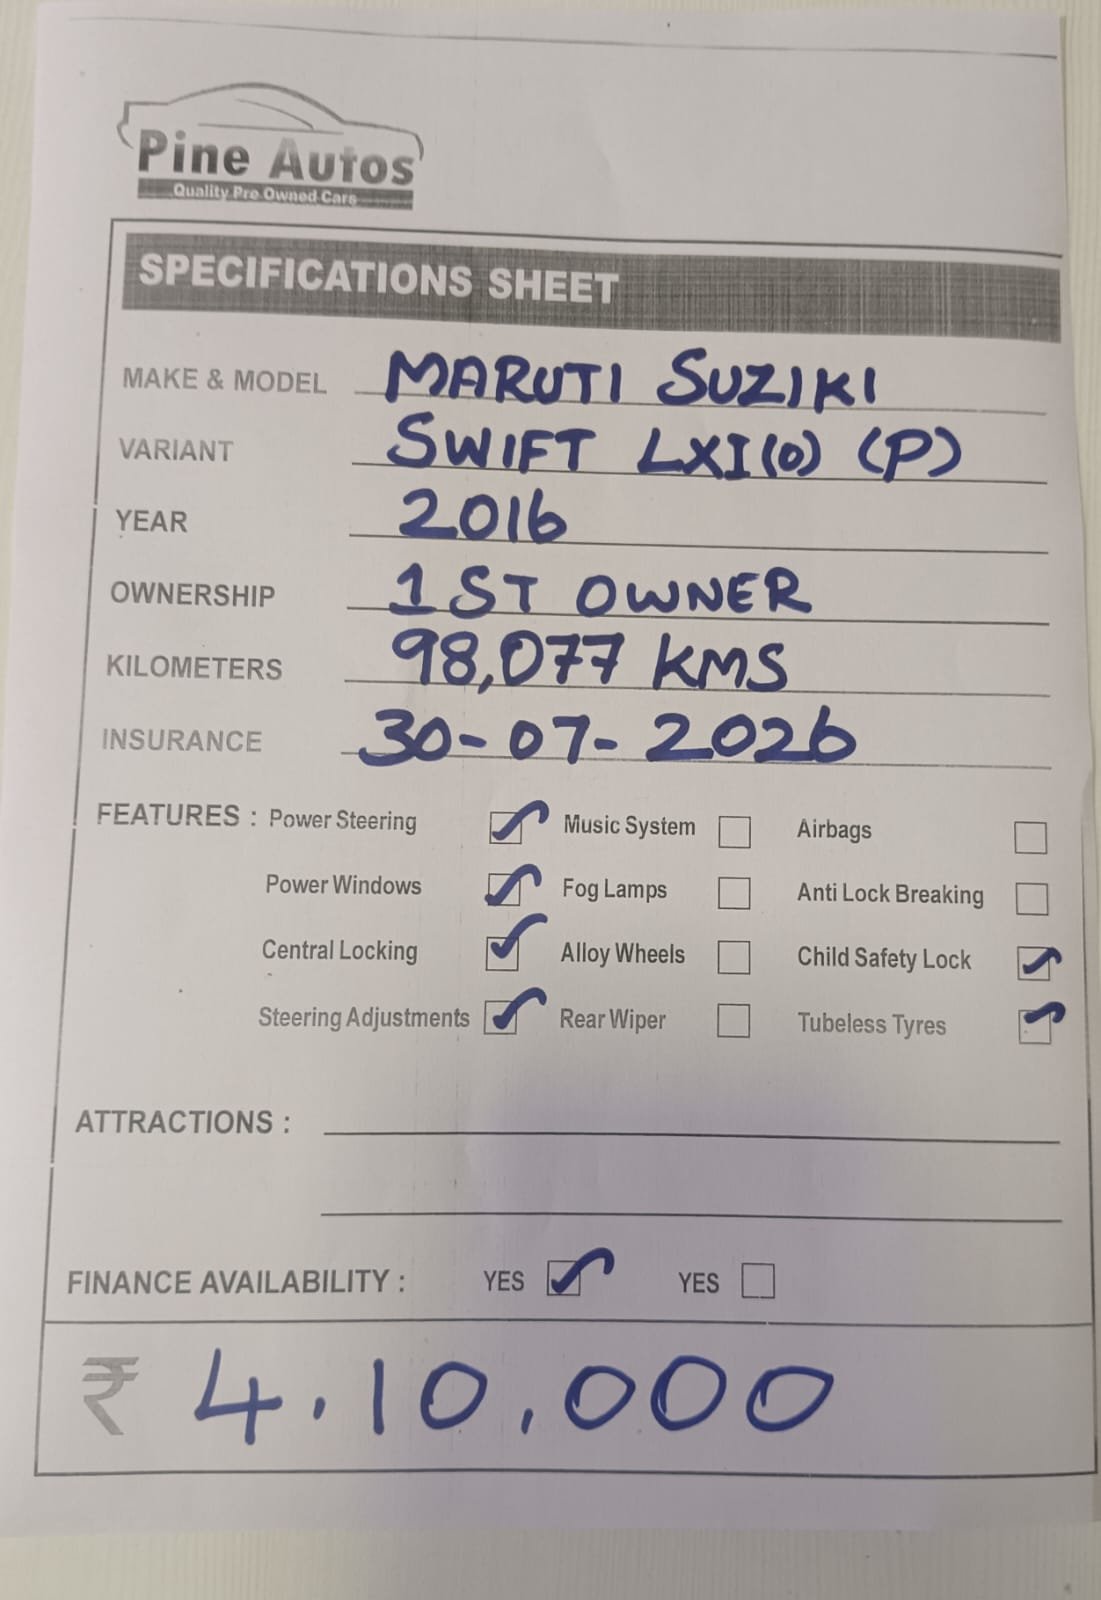 Pine Autos
Quality Pre Owned Cars
SPECIFICATIONS SHEET
MAKE & MODEL MARUTI SUZIKI
VARIANT SWIFT LXI(O) (P)
YEAR 2016
OWNERSHIP 1ST OWNER
KILOMETERS 98,077 KMS
INSURANCE 30-07-2026
FEATURES : Power Steering Music System Airbags
Power Windows Fog Lamps Anti Lock Breaking
Central Locking Alloy Wheels Child Safety Lock
Steering Adjustments Rear Wiper Tubeless Tyres
ATTRACTIONS :
FINANCE AVAILABILITY : YES YES
₹ 4,10,000